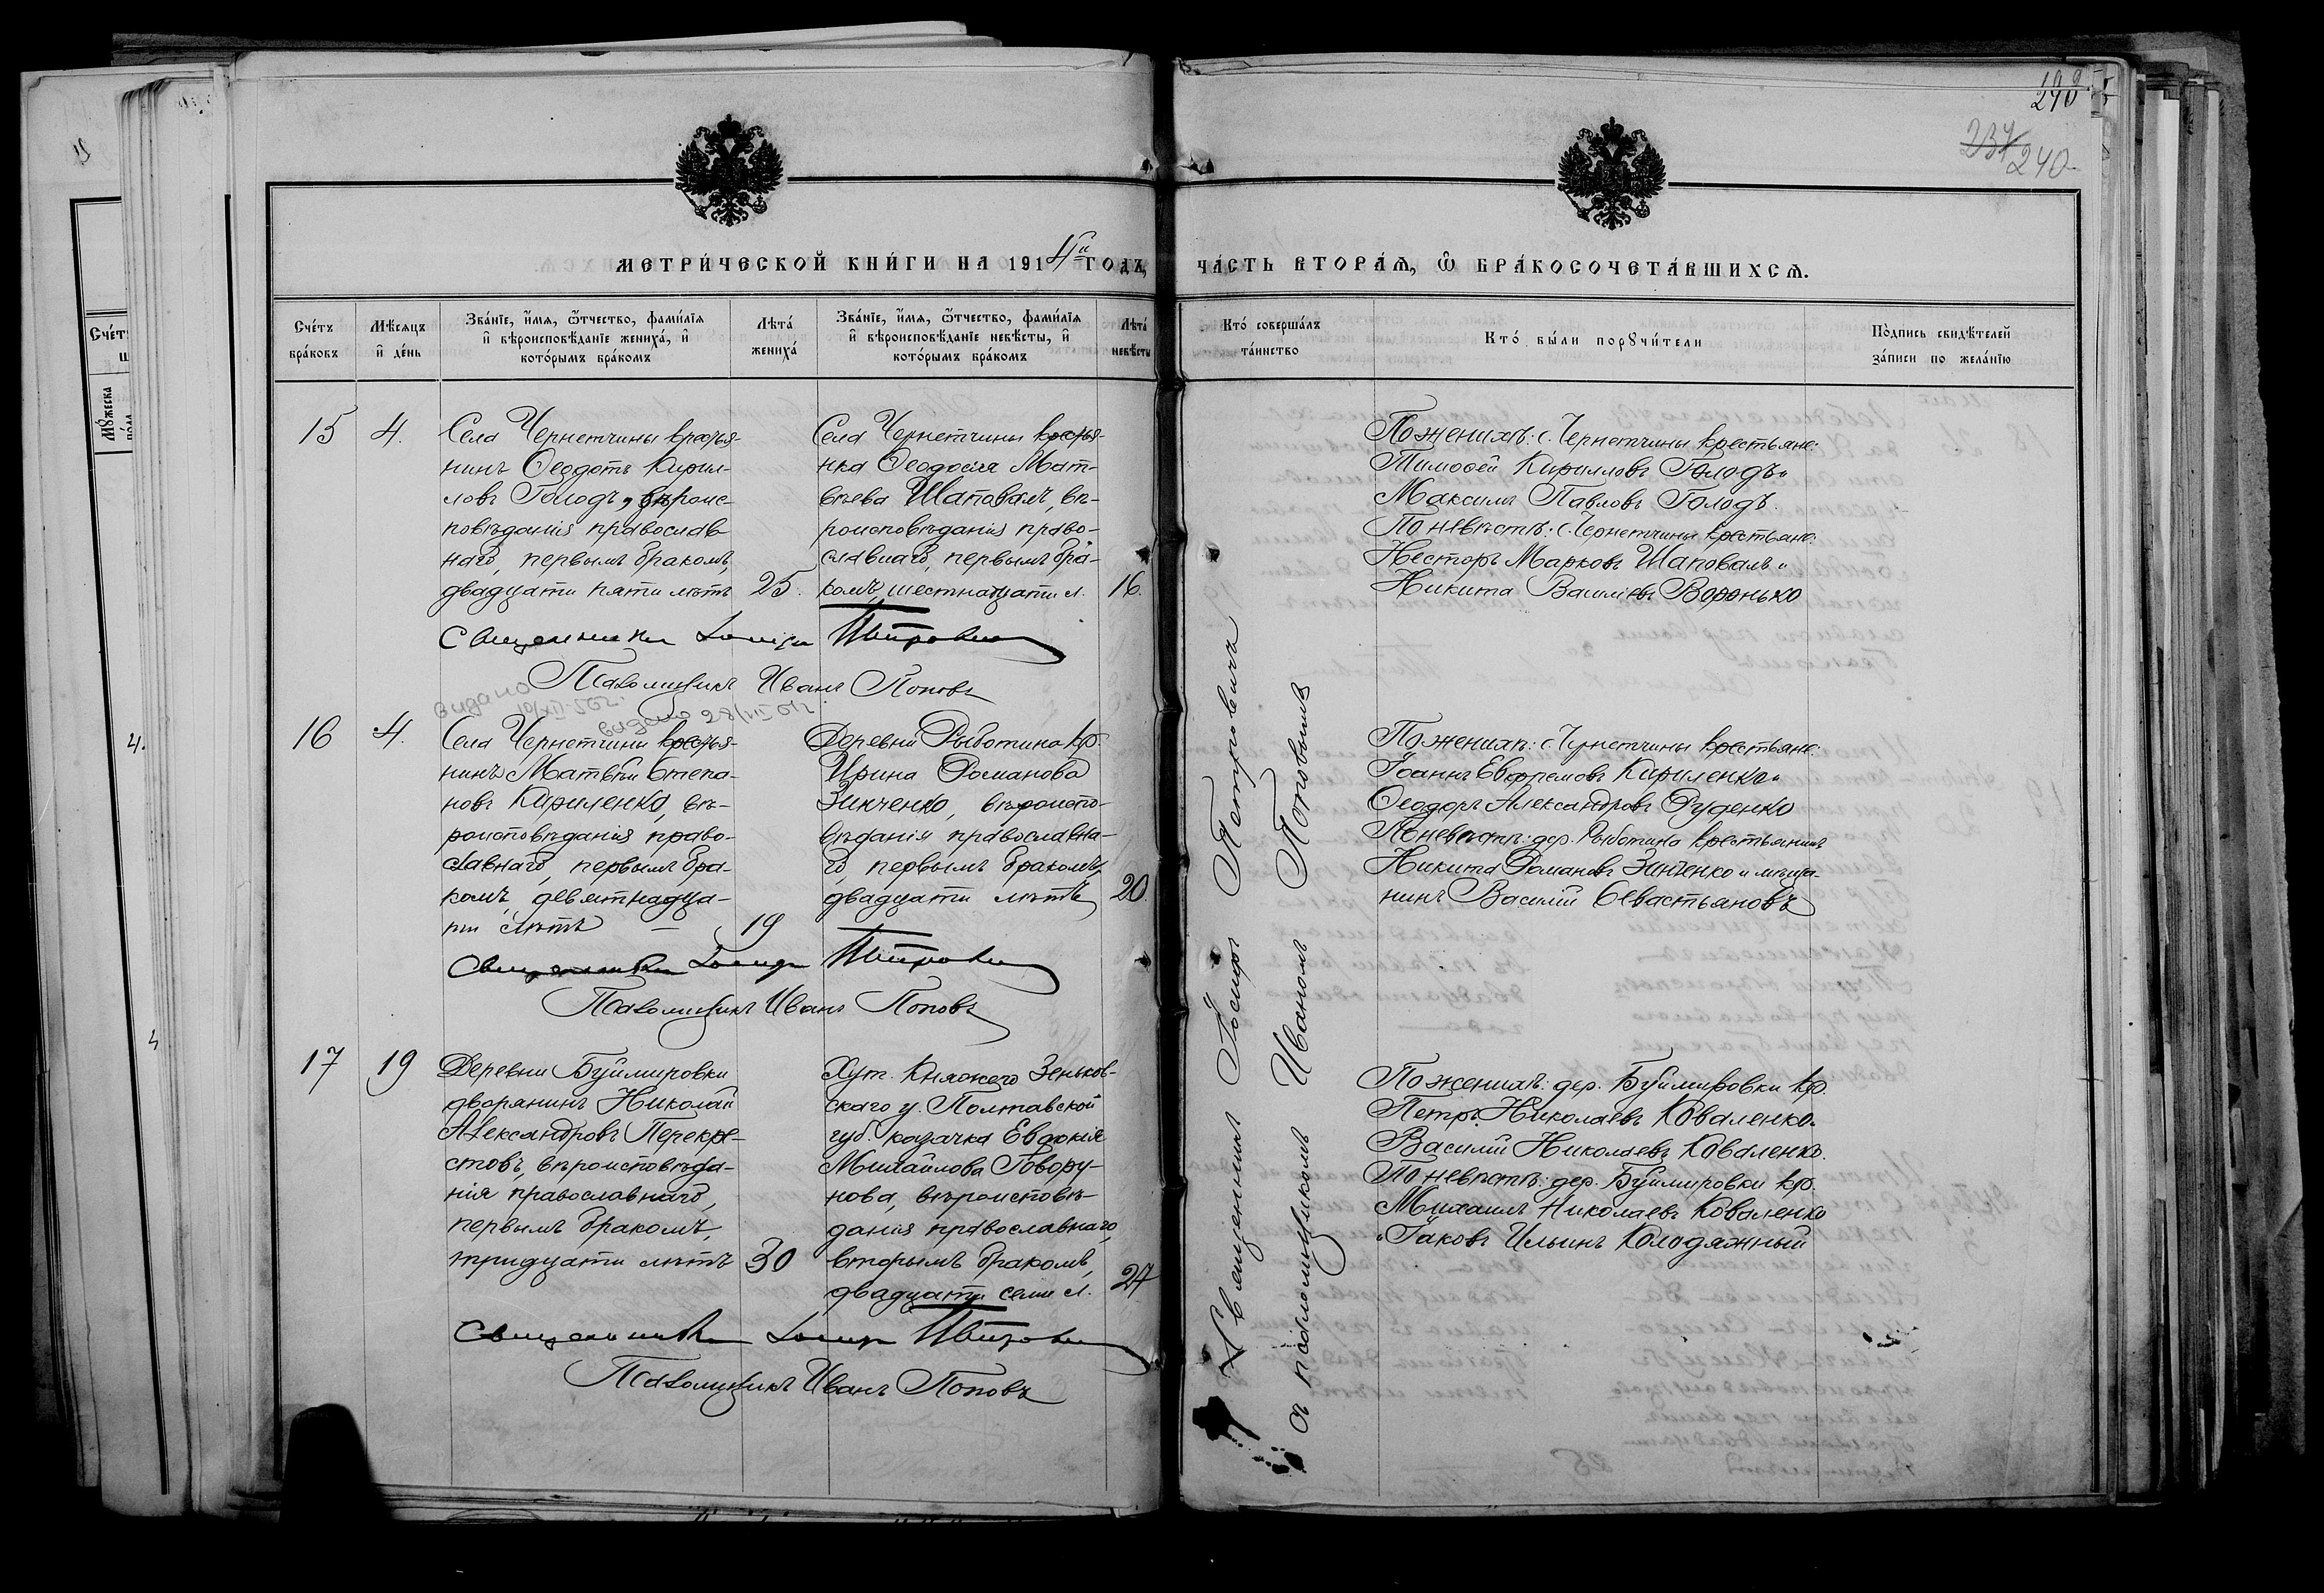 240
237 240
МЕТРИ́ЧЕСКОЙ КНИ́ГИ НА 1914й ГОДЪ,
ЧА́СТЬ ВТОРА́Ѧ, Ѽ БРА́КОСОЧЕТА́ВШИХСѦ.
Сче́тъ бра́ковъ
Мѣ́сяцъ и҆ де́нь
Зва́нїе, и҆́мѧ, ѻ҆́тчество, фами́лїѧ и҆ вѣроисповѣ́данїе жениха́, и҆ кото́рымъ бра́комъ
Лѣта́ жениха́
Зва́нїе, и҆́мѧ, ѻ҆́тчество, фами́лїѧ и҆ вѣроисповѣ́данїе невѣ́сты, и҆ кото́рымъ бра́комъ
Лѣта́ невѣ́сты
Кто́ соверша́лъ та́инство
Кто́ бы́ли порꙋчи́тели
По́дпись свидѣ́телей за́писи по жела́нїю
15
4.
Села Чернетчины крестья-
нинъ Ѳеодотъ Кирил-
ловъ Голодъ, вѣроис-
повѣданія православ-
наго, первымъ бракомъ,
двадцати пяти лѣтъ
25.
Села Чернетчины крестья-
нка Ѳеодосія Мат-
вѣева Шаповалъ, вѣ-
роисповѣданія право-
славнаго, первымъ бра-
комъ, шестнадцати л.
16.
По женихѣ: с. Чернетчины крестьяне:
Тимоѳей Кирилловъ Голодъ и
Максимъ Павловъ Голодъ.
По невѣстѣ: с. Чернетчины крестьяне:
Несторъ Марковъ Шаповалъ и
Никита Василіевъ Воронько
Священникъ Іосифъ Петровичъ
Псаломщикъ Иванъ Поповъ
видано
видано 28/VII
16
4.
Села Чернетчины крестья-
нинъ Матвѣй Степа-
новъ Кириленко, вѣ-
роисповѣданія право-
славнаго, первымъ бра-
комъ, девятнадца-
ти лѣтъ
19
Деревни Рыботина кр.
Ирина Романова
Зинченко, вѣроиспо-
вѣданія православна-
го, первымъ бракомъ,
двадцати лѣтъ
20.
По женихѣ: с. Чернетчины крестьяне:
Іоаннъ Евфремовъ Кириленко и
Ѳеодоръ Александровъ Руденко
По невѣстѣ: дер. Рыботина крестьянинъ
Никита Романовъ Зинченко и мѣща-
нинъ Василій Севастьяновъ
Священникъ Іосифъ Петровичъ
Псаломщикъ Иванъ Поповъ
17
19
Деревни Буймировки
дворянинъ Николай
Александровъ Перекре-
стовъ, вѣроисповѣда-
нія православнаго,
первымъ бракомъ,
тридцати лѣтъ
30
Хут. Княжего Зеньков-
скаго у. Полтавской
губ. казачка Евдокія
Михайлова Говору-
нова, вѣроисповѣ-
данія православнаго,
вторымъ бракомъ,
двадцати семи л.
27
По женихѣ: дер. Буймировки кр.
Петръ Николаевъ Коваленко и
Василій Николаевъ Коваленко.
По невѣстѣ: дер. Буймировки кр.
Михаилъ Николаевъ Коваленко
и Іаковъ Ильинъ Колодяжный
Священникъ Іосифъ Петровичъ
Псаломщикъ Иванъ Поповъ
Священникъ Іосифъ Петровичъ
съ псаломщикомъ Иваномъ Поповымъ